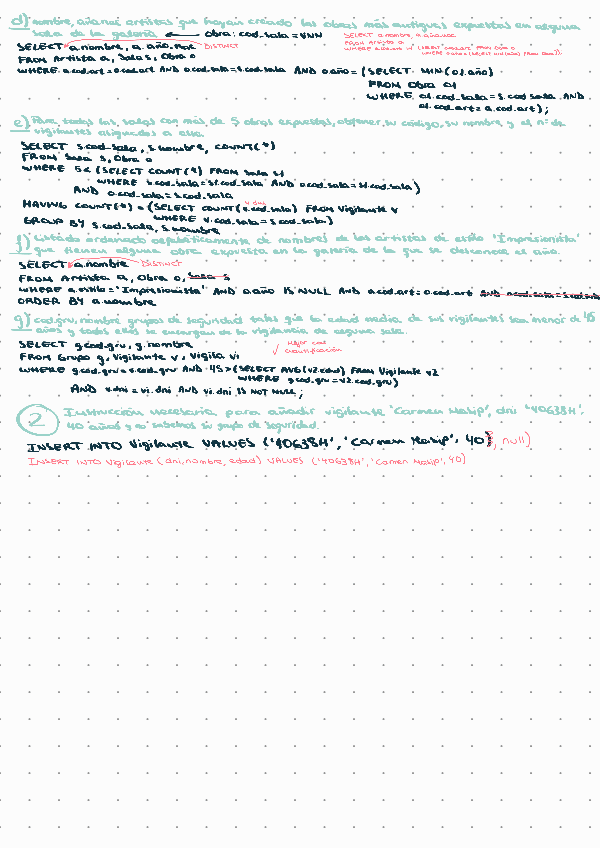 d) nombre, añonac artistas que hayan creado las obras más antiguas expuestas en alguna
sala de la galería ← obra: cod_sala = VNN
SELECT a.nombre, a.año_nac DISTINCT
FROM Artista a, Sala s, Obra o
WHERE a.cod.art = o.cod.art AND o.cod_sala = s.cod_sala AND o.año = (SELECT MIN(o1.año)
FROM Obra o1
WHERE o1.cod_sala = s.cod_sala AND
o1.cod_art = a.cod.art);
SELECT a.nombre, a.año.nac
FROM Artista a
e) Para todas las salas con más de 5 obras expuestas, obtener su código, su nombre y el nº de
vigilantes asignados a ella.
SELECT s.cod_sala, s.nombre, COUNT(*)
FROM Sala s, Obra o
WHERE 5 < (SELECT COUNT(*) FROM Sala s1
WHERE s.cod_sala = s1.cod_sala AND o.cod_sala = s1.cod_sala)
AND o.cod_sala = s.cod_sala
HAVING COUNT(*) = (SELECT COUNT(v.cod_sala) FROM Vigilante v
WHERE v.cod_sala = s.cod_sala)
GROUP BY s.cod_sala, s.nombre
f) Listado ordenado alfabéticamente de nombres de los artistas de estilo 'Impresionista'
que tienen alguna obra expuesta en la galería de la que se desconoce el año.
SELECT a.nombre DISTINCT
FROM Artista a, Obra o, Sala s
WHERE a.estilo = 'Impresionista' AND o.año IS NULL AND a.cod.art = o.cod.art
ORDER BY a.nombre
g) cod.gru, nombre grupos de seguridad tales que la edad media de sus vigilantes sea menor de 45
años y todos ellos se encargan de la vigilancia de alguna sala.
SELECT g.cod.gru, g.nombre
FROM Grupo g, Vigilante v, Vigila vi
Mejor con
cuantificación
WHERE g.cod.gru = v.cod.gru AND 45 > (SELECT AVG(v2.edad) FROM Vigilante v2
WHERE g.cod.gru = v2.cod.gru)
AND v.dni = vi.dni AND vi.dni IS NOT NULL;
2 Instrucción necesaria para añadir vigilante 'Carmen Masip', dni '40638H'.
40 años y no sabemos su grupo de seguridad.
INSERT INTO Vigilante VALUES ('40638H', 'Carmen Masip', 40, null)
INSERT INTO Vigilante (dni, nombre, edad) VALUES ('40638H', 'Carmen Masip', 40)